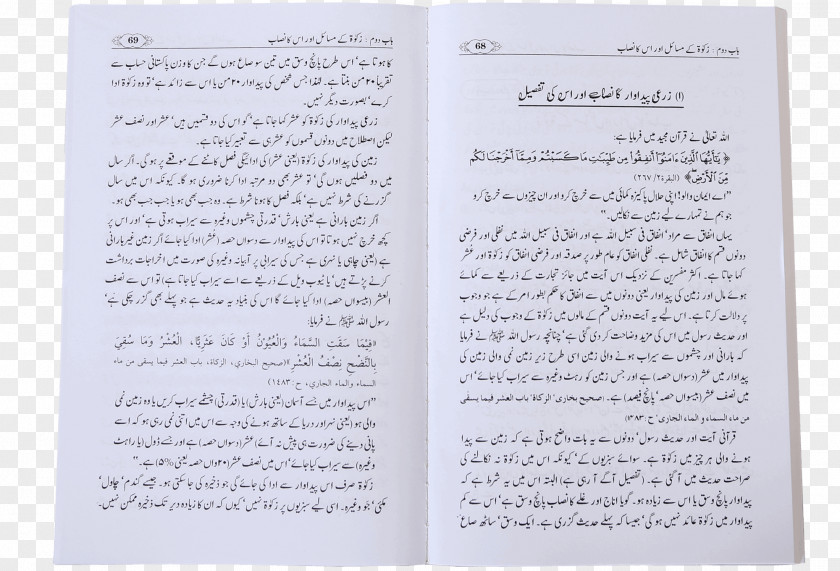 باب دوم : زکوٰۃ کے مسائل اور اس کا نصاب 68
(۱) زرعی پیداوار کا نصاب اور اس کی تفصیل
اللہ تعالیٰ نے قرآن مجید میں فرمایا ہے:
﴿ يَٰٓأَيُّهَا ٱلَّذِينَ ءَامَنُوٓا۟ أَنفِقُوا۟ مِن طَيِّبَٰتِ مَا كَسَبْتُمْ وَمِمَّآ أَخْرَجْنَا لَكُم
مِّنَ ٱلْأَرْضِ﴾ (البقرة۲/ ۲۶۷)
’’اے ایمان والو! اپنی حلال پاکیزہ کمائی میں سے خرچ کرو اور ان چیزوں سے خرچ کرو
جو ہم نے تمہارے لیے زمین سے نکالیں۔‘‘
یہاں انفاق سے مراد‘ انفاق فی سبیل اللہ ہے اور انفاق فی سبیل اللہ میں نفلی اور فرضی
دونوں قسم کا انفاق شامل ہے۔ نفلی انفاق کو عام طور پر صدقہ اور فرضی انفاق کو زکوٰۃ اور عشر
کہا جاتا ہے۔ اکثر مفسرین کے نزدیک اس آیت میں جائز تجارت کے ذریعے سے کمائے
ہوئے مال اور زمین کی پیداوار یعنی دونوں میں سے انفاق کا حکم بطور امر کے ہے جو وجوب
پر دلالت کرتا ہے۔ اس لیے یہ آیت دونوں قسم کے مالوں میں زکوٰۃ کے وجوب کی دلیل ہے
اور حدیث رسول میں اس کی مزید وضاحت کر دی گئی ہے‘ چنانچہ رسول اللہ ﷺ نے فرمایا
کہ بارانی اور چشموں سے سیراب ہونے والی زمین اسی طرح زیر زمین نمی والی زمین کی
پیداوار میں عشر (دسواں حصہ) ہے اور جس زمین کو رہٹ وغیرہ سے سیراب کیا جائے‘ اس
میں نصف عشر (بیسواں حصہ) ’پانچ فیصد‘ ہے۔ (صحيح بخاری‘ الزكاة‘ باب العشر فيما يسقى
من ماء السماء و الماء الجاری‘ ح:۱۴۸۳)
قرآنی آیت اور حدیث رسول‘ دونوں سے یہ بات واضح ہوتی ہے کہ زمین سے پیدا
ہونے والی ہر چیز میں زکوٰۃ ہے۔ سوائے سبزیوں کے‘ کیونکہ اس میں زکوٰۃ نہ نکالنے کی
صراحت حدیث میں آ گئی ہے۔ (تفصیل آگے آ رہی ہے) البتہ اس میں یہ شرط ہے کہ
پیداوار پانچ وسق یا اس سے زیادہ ہو۔ گویا اناج اور غلے کا نصاب پانچ وسق ہے‘ اس سے کم
پیداوار میں زکوٰۃ عائد نہیں ہو گی‘ جیسا کہ پہلے حدیث گزری ہے۔ ایک وسق‘ ساٹھ صاع
باب دوم : زکوٰۃ کے مسائل اور اس کا نصاب 69
کا ہوتا ہے‘ اس طرح پانچ وسق میں تین سو صاع ہوں گے جن کا وزن پاکستانی حساب سے
تقریباً ۲۰ من بنتا ہے۔ لہٰذا جس شخص کی پیداوار ۲۰ من یا اس سے زائد ہے‘ تو وہ زکوٰۃ ادا
کرے‘ بصورت دیگر نہیں۔
زرعی پیداوار کی زکوٰۃ کو عشر کہا جاتا ہے‘ گو اس کی دو قسمیں ہیں‘ عشر اور نصف عشر
لیکن اصطلاح میں دونوں قسموں کو عشر ہی سے تعبیر کیا جاتا ہے۔
زمین کی پیداوار کی زکوٰۃ (یعنی عشر) کی ادائیگی فصل کاٹنے کے موقعے پر ہو گی۔ اگر سال
میں دو فصلیں ہوں گی‘ تو عشر بھی دو مرتبہ ادا کرنا ضروری ہو گا۔ کیونکہ اس میں سال
گزرنے کی شرط نہیں ہے‘ بلکہ فصل کا ہونا شرط ہے۔ وہ جب بھی ہو یا جب جب بھی ہو۔
اگر زمین بارانی ہے یعنی بارش‘ قدرتی چشموں وغیرہ سے سیراب ہوتی ہے‘ اور اس پر
کچھ خرچ نہیں ہوتا تو اس کی پیداوار سے دسواں حصہ (عشر) ادا کیا جائے اگر زمین غیر بارانی
ہے (یعنی چاہی یا نہری ہے جس کی سیرابی پر آبیانہ وغیرہ کی صورت میں اخراجات برداشت
کرنے پڑتے ہیں‘ یا ٹیوب ویل کے ذریعے سے اسے سیراب کیا جاتا ہے) تو اس سے نصف
العشر (بیسواں حصہ) ادا کیا جائے گا اس کی بنیاد یہ حدیث ہے جو پہلے بھی گزر چکی ہے‘
رسول اللہ ﷺ نے فرمایا:
«فِيمَا سَقَتِ السَّمَاءُ وَالْعُيُونُ أَوْ كَانَ عَثَرِيًّا، الْعُشْرُ وَمَا سُقِيَ
بِالنَّضْحِ نِصْفُ الْعُشْرِ»(صحيح البخاري، الزكاة، باب العشر فيما يسقى من ماء
السماء والماء الجاري، ح:۱۴۸۳)
’’اس پیداوار میں جسے آسمان (یعنی بارش) یا (قدرتی) چشمے سیراب کریں یا وہ زمین نمی
والی ہو (یعنی نہر اور دریا کے ساتھ ہونے کی وجہ سے اس میں اتنی نمی رہتی ہو کہ اسے
پانی دینے کی ضرورت ہی پیش نہ آئے) عشر (دسواں حصہ) ہے اور جسے ڈول (یا راہٹ
وغیرہ) سے سیراب کیا جائے‘ اس میں نصف عشر (۲۰واں حصہ یعنی ۵%) ہے۔‘‘
زکوٰۃ صرف اس پیداوار سے ادا کی جائے گی جو ذخیرہ کی جا سکتی ہو۔ جیسے گندم‘ چاول‘
مکئی‘ جَو وغیرہ۔ اسی لیے سبزیوں پر زکوٰۃ نہیں‘ کیوں کہ ان کا زیادہ دیر تک ذخیرہ ممکن نہیں۔